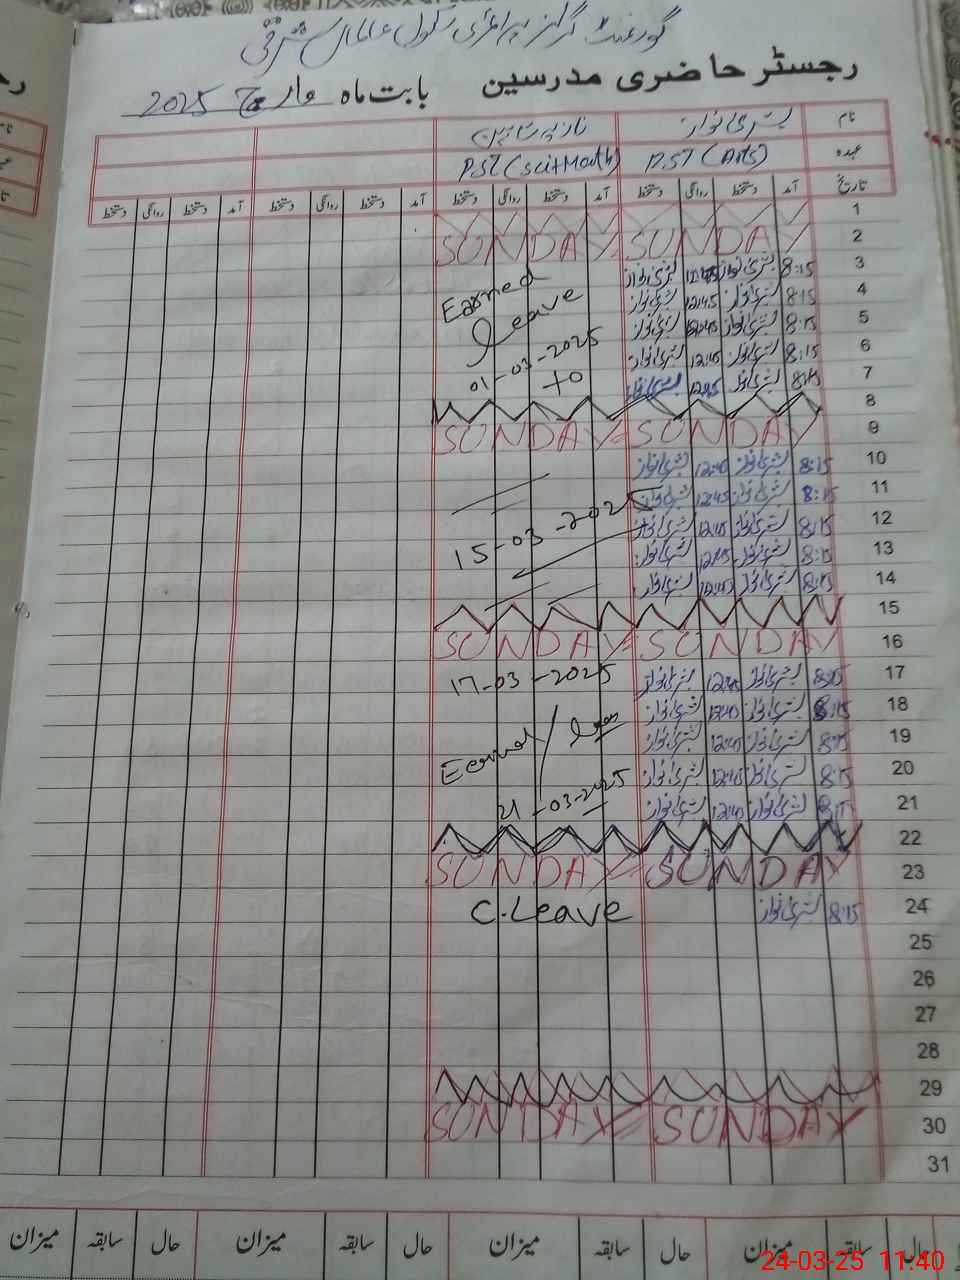 گورنمنٹ گرلز پرائمری سکول عالماں شرقی
رجسٹر حاضری مدرسین بابت ماہ مارچ 2025
نام بشریٰ نواز نازیہ شاہین
عہدہ PST (Arts) PST (Sci+Math)
تاریخ آمد دستخط روانگی دستخط آمد دستخط روانگی دستخط آمد دستخط روانگی دستخط آمد دستخط روانگی دستخط
1
2 SUNDAY SUNDAY
3 8:15 بشریٰ نواز 12:45 بشریٰ نواز Earned
4 8:15 بشریٰ نواز 12:45 بشریٰ نواز leave
5 8:15 بشریٰ نواز 12:45 بشریٰ نواز
6 8:15 بشریٰ نواز 12:45 بشریٰ نواز 01-03-2025
7 8:15 بشریٰ نواز 12:45 بشریٰ نواز to
8
9 SUNDAY SUNDAY
10 8:15 بشریٰ نواز 12:45 بشریٰ نواز
11 8:15 بشریٰ نواز 12:45 بشریٰ نواز
12 8:15 بشریٰ نواز 12:45 بشریٰ نواز 15-03-2025
13 8:15 بشریٰ نواز 12:45 بشریٰ نواز
14 8:15 بشریٰ نواز 12:45 بشریٰ نواز
15
16 SUNDAY SUNDAY
17 8:15 بشریٰ نواز 12:45 بشریٰ نواز 17-03-2025
18 8:15 بشریٰ نواز 12:45 بشریٰ نواز
19 8:15 بشریٰ نواز 12:45 بشریٰ نواز
20 8:15 بشریٰ نواز 12:45 بشریٰ نواز
21 8:15 بشریٰ نواز 12:45 بشریٰ نواز 21-03-2025
22
23 SUNDAY SUNDAY
24 8:15 بشریٰ نواز C.Leave
25
26
27
28
29
30 SUNDAY SUNDAY
31
حال سابقہ میزان حال سابقہ میزان حال سابقہ میزان حال سابقہ میزان
24-03-25 11:40